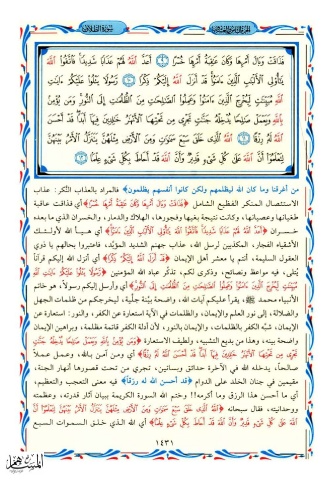 الجزء الثامن والعشرون
سورة الطلاق
فَذَاقَتْ وَبَالَ أَمْرِهَا وَكَانَ عَاقِبَةُ أَمْرِهَا خُسْرًا ٩ أَعَدَّ اللَّهُ لَهُمْ عَذَابًا شَدِيدًا فَاتَّقُوا اللَّهَ
يَا أُولِي الْأَلْبَابِ الَّذِينَ آمَنُوا قَدْ أَنزَلَ اللَّهُ إِلَيْكُمْ ذِكْرًا ١٠ رَّسُولًا يَتْلُوا عَلَيْكُمْ آيَاتِ
اللَّهِ مُبَيِّنَاتٍ لِّيُخْرِجَ الَّذِينَ آمَنُوا وَعَمِلُوا الصَّالِحَاتِ مِنَ الظُّلُمَاتِ إِلَى النُّورِ وَمَن يُؤْمِن
بِاللَّهِ وَيَعْمَلْ صَالِحًا يُدْخِلْهُ جَنَّاتٍ تَجْرِي مِن تَحْتِهَا الْأَنْهَارُ خَالِدِينَ فِيهَا أَبَدًا قَدْ أَحْسَنَ
اللَّهُ لَهُ رِزْقًا ١١ اللَّهُ الَّذِي خَلَقَ سَبْعَ سَمَاوَاتٍ وَمِنَ الْأَرْضِ مِثْلَهُنَّ يَتَنَزَّلُ الْأَمْرُ بَيْنَهُنَّ
لِتَعْلَمُوا أَنَّ اللَّهَ عَلَى كُلِّ شَيْءٍ قَدِيرٌ وَأَنَّ اللَّهَ قَدْ أَحَاطَ بِكُلِّ شَيْءٍ عِلْمًا ١٢
من أغرقنا وما كان الله ليظلمهم ولكن كانوا أنفسهم يظلمون﴾ فالمراد بالعذاب النُّكر: عذاب
الاستئصال المنكر الفظيع الشامل ﴿فَذَاقَتْ وَبَالَ أَمْرِهَا وَكَانَ عَاقِبَةُ أَمْرِهَا خُسْرًا﴾ أي فذاقت عاقبة
طغيانها وعصيانها، وكانت نتيجة بغيها وفجورها، الهلاك والدمار، والخسران الذي ما بعده
خسران ﴿أَعَدَّ اللَّهُ لَهُمْ عَذَابًا شَدِيدًا فَاتَّقُوا اللَّهَ يَا أُولِي الْأَلْبَابِ الَّذِينَ آمَنُوا﴾ أي هيأ الله لأولئك
الأشقياء الفجار، المكذبين لرسل الله، عذاب جهنم الشديد المؤبد، فاعتبروا بحالهم يا ذوي
العقول السليمة، أنتم يا معشر أهل الإيمان ﴿قَدْ أَنزَلَ اللَّهُ إِلَيْكُمْ ذِكْرًا﴾ أي أنزل الله إليكم قرآناً
يُتلى، فيه مواعظ ونصائح، وذكرى لكم، تذكّر عباد الله المؤمنين ﴿رَّسُولًا يَتْلُوا عَلَيْكُمْ آيَاتِ اللَّهِ
مُبَيِّنَاتٍ لِّيُخْرِجَ الَّذِينَ آمَنُوا وَعَمِلُوا الصَّالِحَاتِ مِنَ الظُّلُمَاتِ إِلَى النُّورِ﴾ أي وأرسل إليكم رسولاً، هو خاتم
الأنبياء محمد ﷺ، يقرأ عليكم آيات الله، واضحة بيِّنة جليَّة، ليخرجكم من ظلمات الجهل
والضلالة، إلى نور العلم والإيمان، والظلمات في الآية استعارة عن الكفر، والنور: استعارة عن
الإيمان، شبَّه الكفر بالظلمات، والإيمان بالنور، لأن أدلة الكفر قائمة مظلمة، وبراهين الإيمان
واضحة بينه، وهذا من بديع التشبيه، ولطيف الاستعارة ﴿وَمَن يُؤْمِن بِاللَّهِ وَيَعْمَلْ صَالِحًا يُدْخِلْهُ جَنَّاتٍ
تَجْرِي مِن تَحْتِهَا الْأَنْهَارُ خَالِدِينَ فِيهَا أَبَدًا قَدْ أَحْسَنَ اللَّهُ لَهُ رِزْقًا﴾ أي ومن آمن بالله، وعمل عملاً
صالحاً، يدخله الله في الآخرة حدائق وبساتين، تجري من تحت قصورها أنهار الجنة،
مقيمين في جنان الخلد على الدوام ﴿قد أحسن الله له رزقاً﴾ فيه معنى التعجب والتعظيم،
أي ما أحسن هذا الرزق وما أكرمه!! وختم الله السورة الكريمة ببيان آثار قدرته، وعظمته
ووحدانيته، فقال سبحانه ﴿اللَّهُ الَّذِي خَلَقَ سَبْعَ سَمَاوَاتٍ وَمِنَ الْأَرْضِ مِثْلَهُنَّ يَتَنَزَّلُ الْأَمْرُ بَيْنَهُنَّ لِتَعْلَمُوا أَنَّ
اللَّهَ عَلَى كُلِّ شَيْءٍ قَدِيرٌ وَأَنَّ اللَّهَ قَدْ أَحَاطَ بِكُلِّ شَيْءٍ عِلْمًا﴾ أي الله الذي خلق السموات السبع
١٤٣١